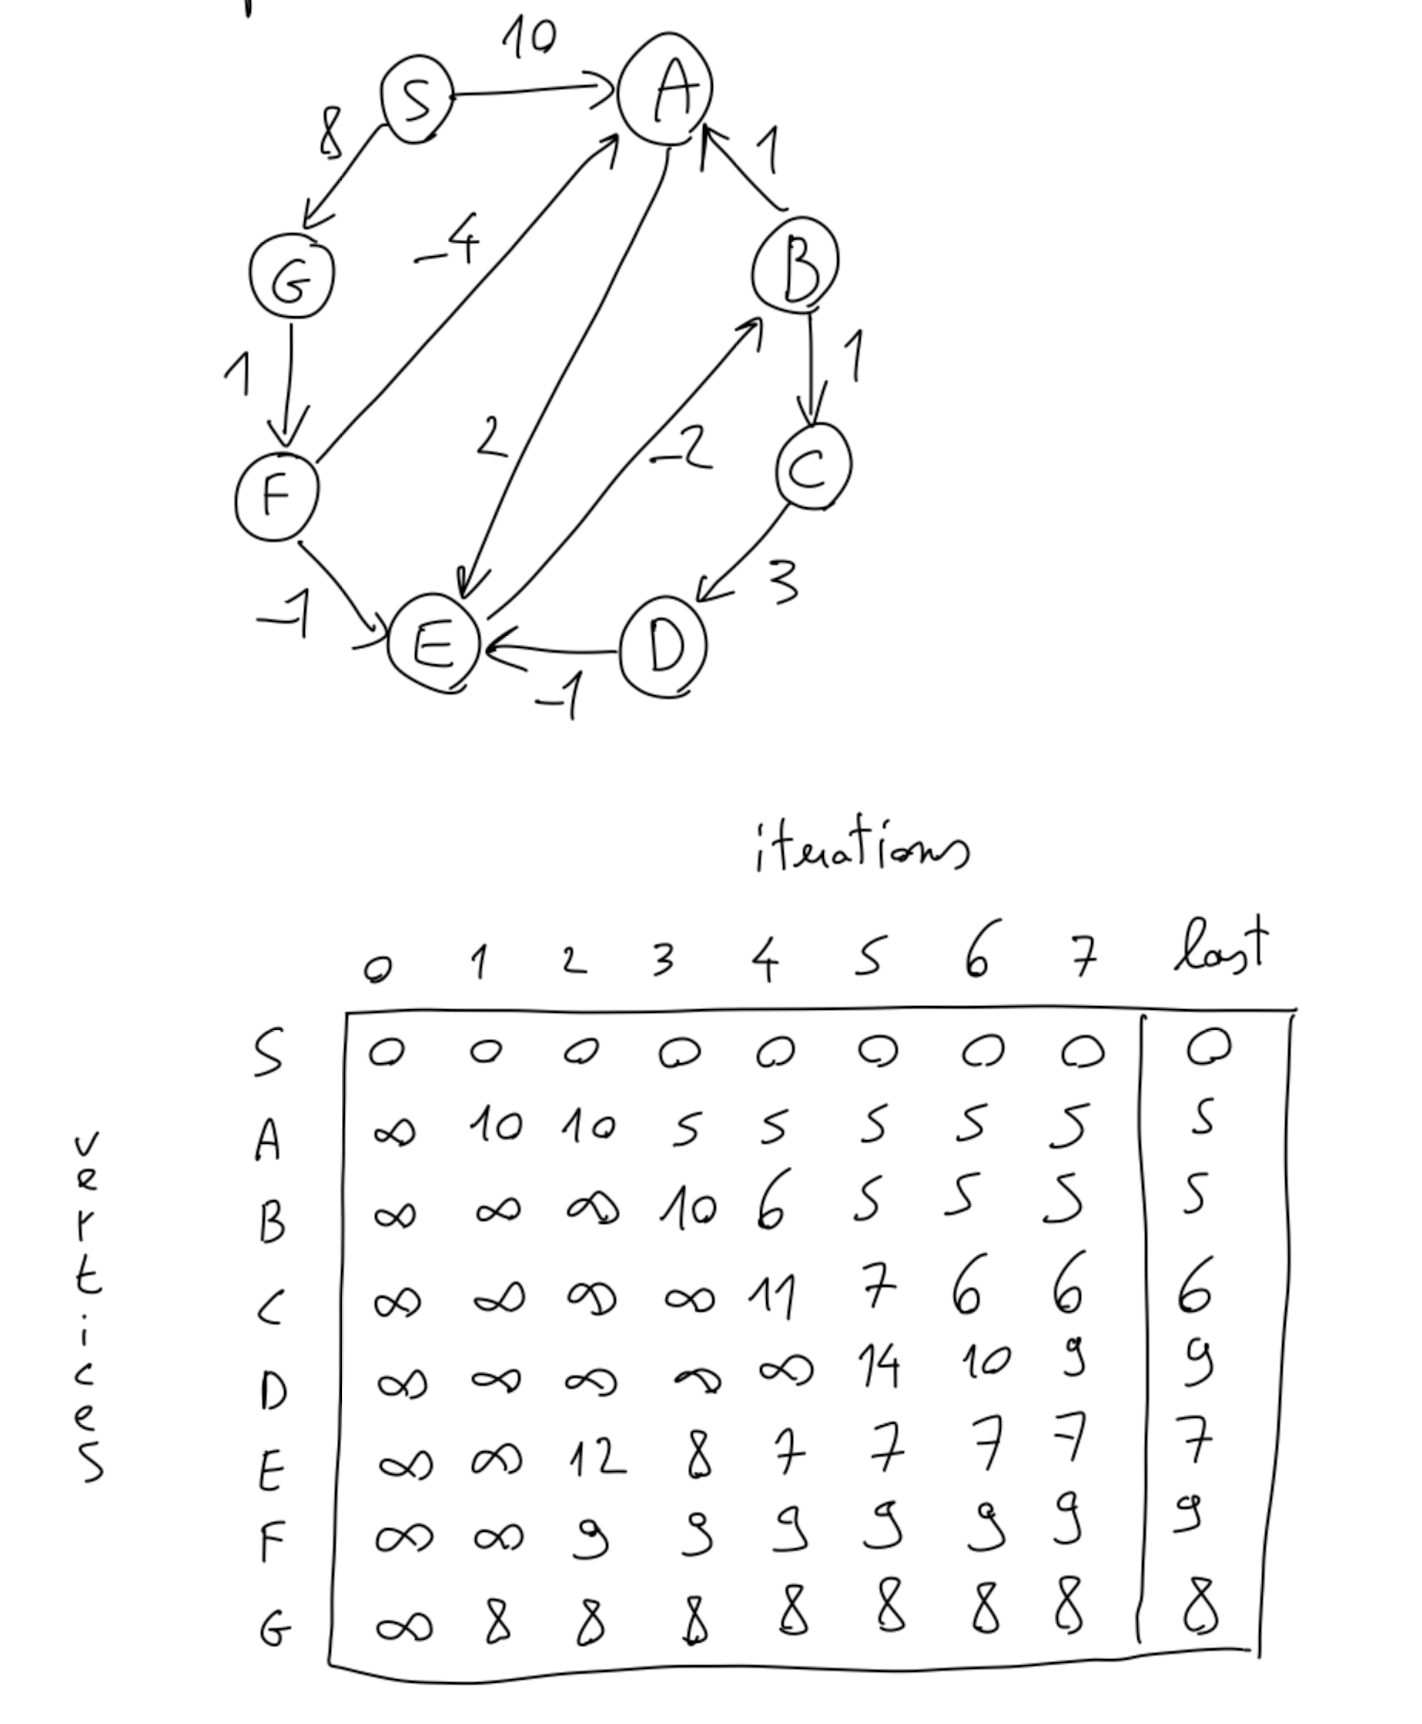 10
S A
8 1
-4
G B
1 2 -2 1
F C
-1 3
E D
-1
iterations
0 1 2 3 4 5 6 7 last
vertices
S 0 0 0 0 0 0 0 0 0
A ∞ 10 10 5 5 5 5 5 5
B ∞ ∞ ∞ 10 6 5 5 5 5
C ∞ ∞ ∞ ∞ 11 7 6 6 6
D ∞ ∞ ∞ ∞ ∞ 14 10 9 9
E ∞ ∞ 12 8 7 7 7 7 7
F ∞ ∞ 9 9 9 9 9 9 9
G ∞ 8 8 8 8 8 8 8 8